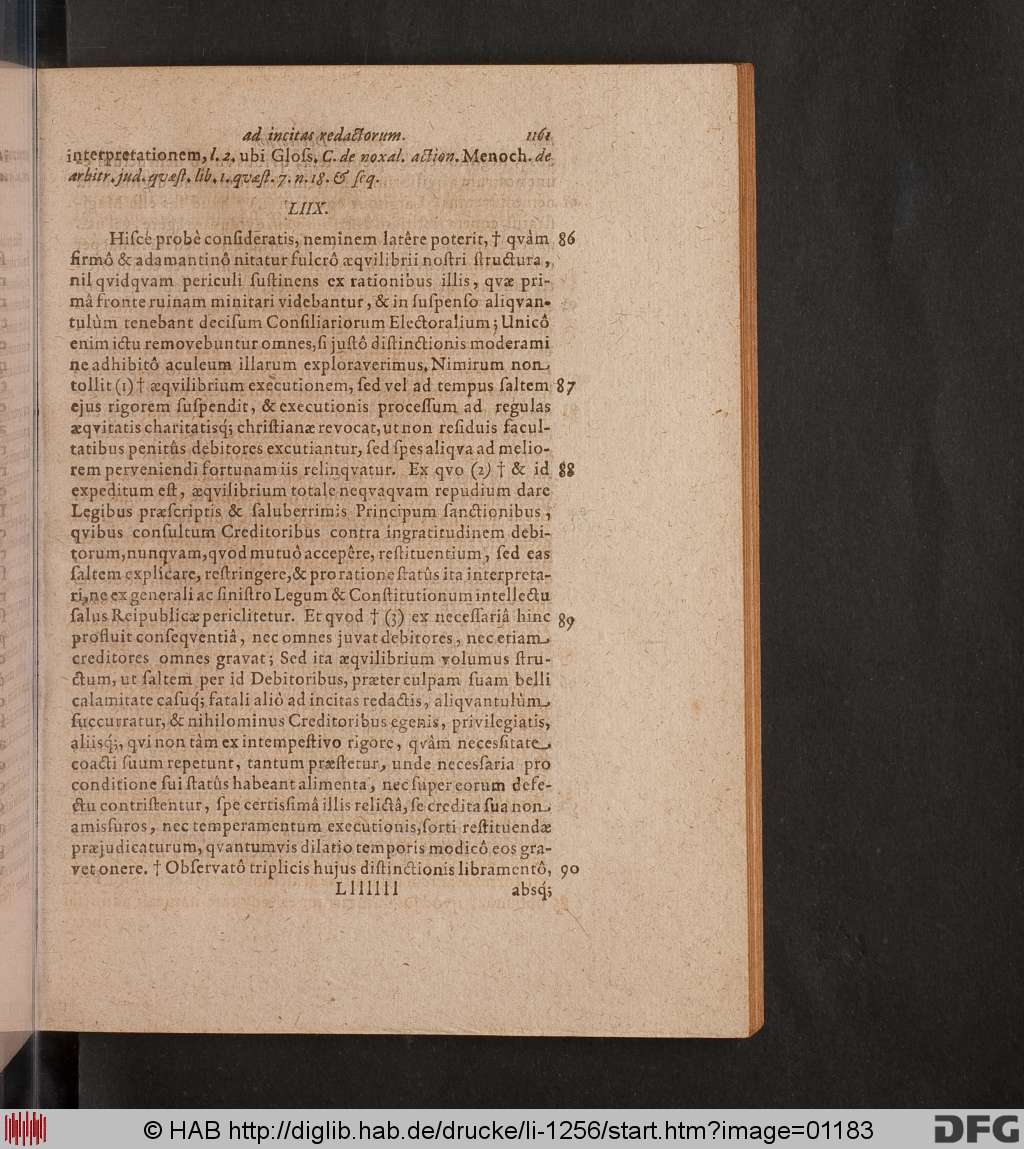 ad incitas redactorum. 1161
interpretationem, l. 2. ubi Gloſſ. C. de noxal. action. Menoch. de
arbitr. jud. qvæſt. lib. 1. qvæſt. 7. n. 18. & ſeq.
LIIX.
Hiſce probè conſideratis, neminem latêre poterit, † qvàm 86
firmô & adamantinô nitatur fulcrô æqvilibrii noſtri ſtructura,
nil qvidqvam periculi ſuſtinens ex rationibus illis, qvæ pri-
mâ fronte ruinam minitari videbantur, & in ſuſpenſo aliqvan-
tulùm tenebant deciſum Conſiliariorum Electoralium; Unicô
enim ictu removebuntur omnes, ſi juſtô diſtinctionis moderami
ne adhibitô aculeum illarum exploraverimus. Nimirum non
tollit (1) † æqvilibrium executionem, ſed vel ad tempus ſaltem 87
ejus rigorem ſuſpendit, & executionis proceſſum ad regulas
æqvitatis charitatisq́; chriſtianæ revocat, ut non reſiduis facul-
tatibus penitûs debitores excutiantur, ſed ſpes aliqva ad melio-
rem perveniendi fortunam iis relinqvatur. Ex qvo (2) † & id 88
expeditum eſt, æqvilibrium totale neqvaqvam repudium dare
Legibus præſcriptis & ſaluberrimis Principum ſanctionibus,
qvibus conſultum Creditoribus contra ingratitudinem debi-
torum, nunqvam, qvod mutuò accepêre, reſtituentium, ſed eas
ſaltem explicare, reſtringere, & pro ratione ſtatûs ita interpreta-
ri, ne ex generali ac ſiniſtro Legum & Conſtitutionum intellectu
ſalus Reipublicæ periclitetur. Et qvod † (3) ex neceſſariâ hinc 89
profluit conſeqventiâ, nec omnes juvat debitores, nec etiam
creditores omnes gravat; Sed ita æqvilibrium volumus ſtru-
ctum, ut ſaltem per id Debitoribus, præter culpam ſuam belli
calamitate caſuq́; fatali aliô ad incitas redactis, aliqvantulùm
ſuccurratur, & nihilominus Creditoribus egenis, privilegiatis,
aliisq́;, qvi non tàm ex intempeſtivo rigore, qvâm neceſſitate
coacti ſuum repetunt, tantum præſtetur, unde neceſſaria pro
conditione ſui ſtatûs habeant alimenta, nec ſuper eorum defe-
ctu contriſtentur, ſpe certiſſimâ illis relictâ, ſe credita ſua non
amiſſuros, nec temperamentum executionis, ſorti reſtituendæ
præjudicaturum, qvantumvis dilatio temporis modicô eos gra-
vet onere. † Obſervatô triplicis hujus diſtinctionis libramentô, 90
Lllllll absq́;
© HAB http://diglib.hab.de/drucke/li-1256/start.htm?image=01183
DFG